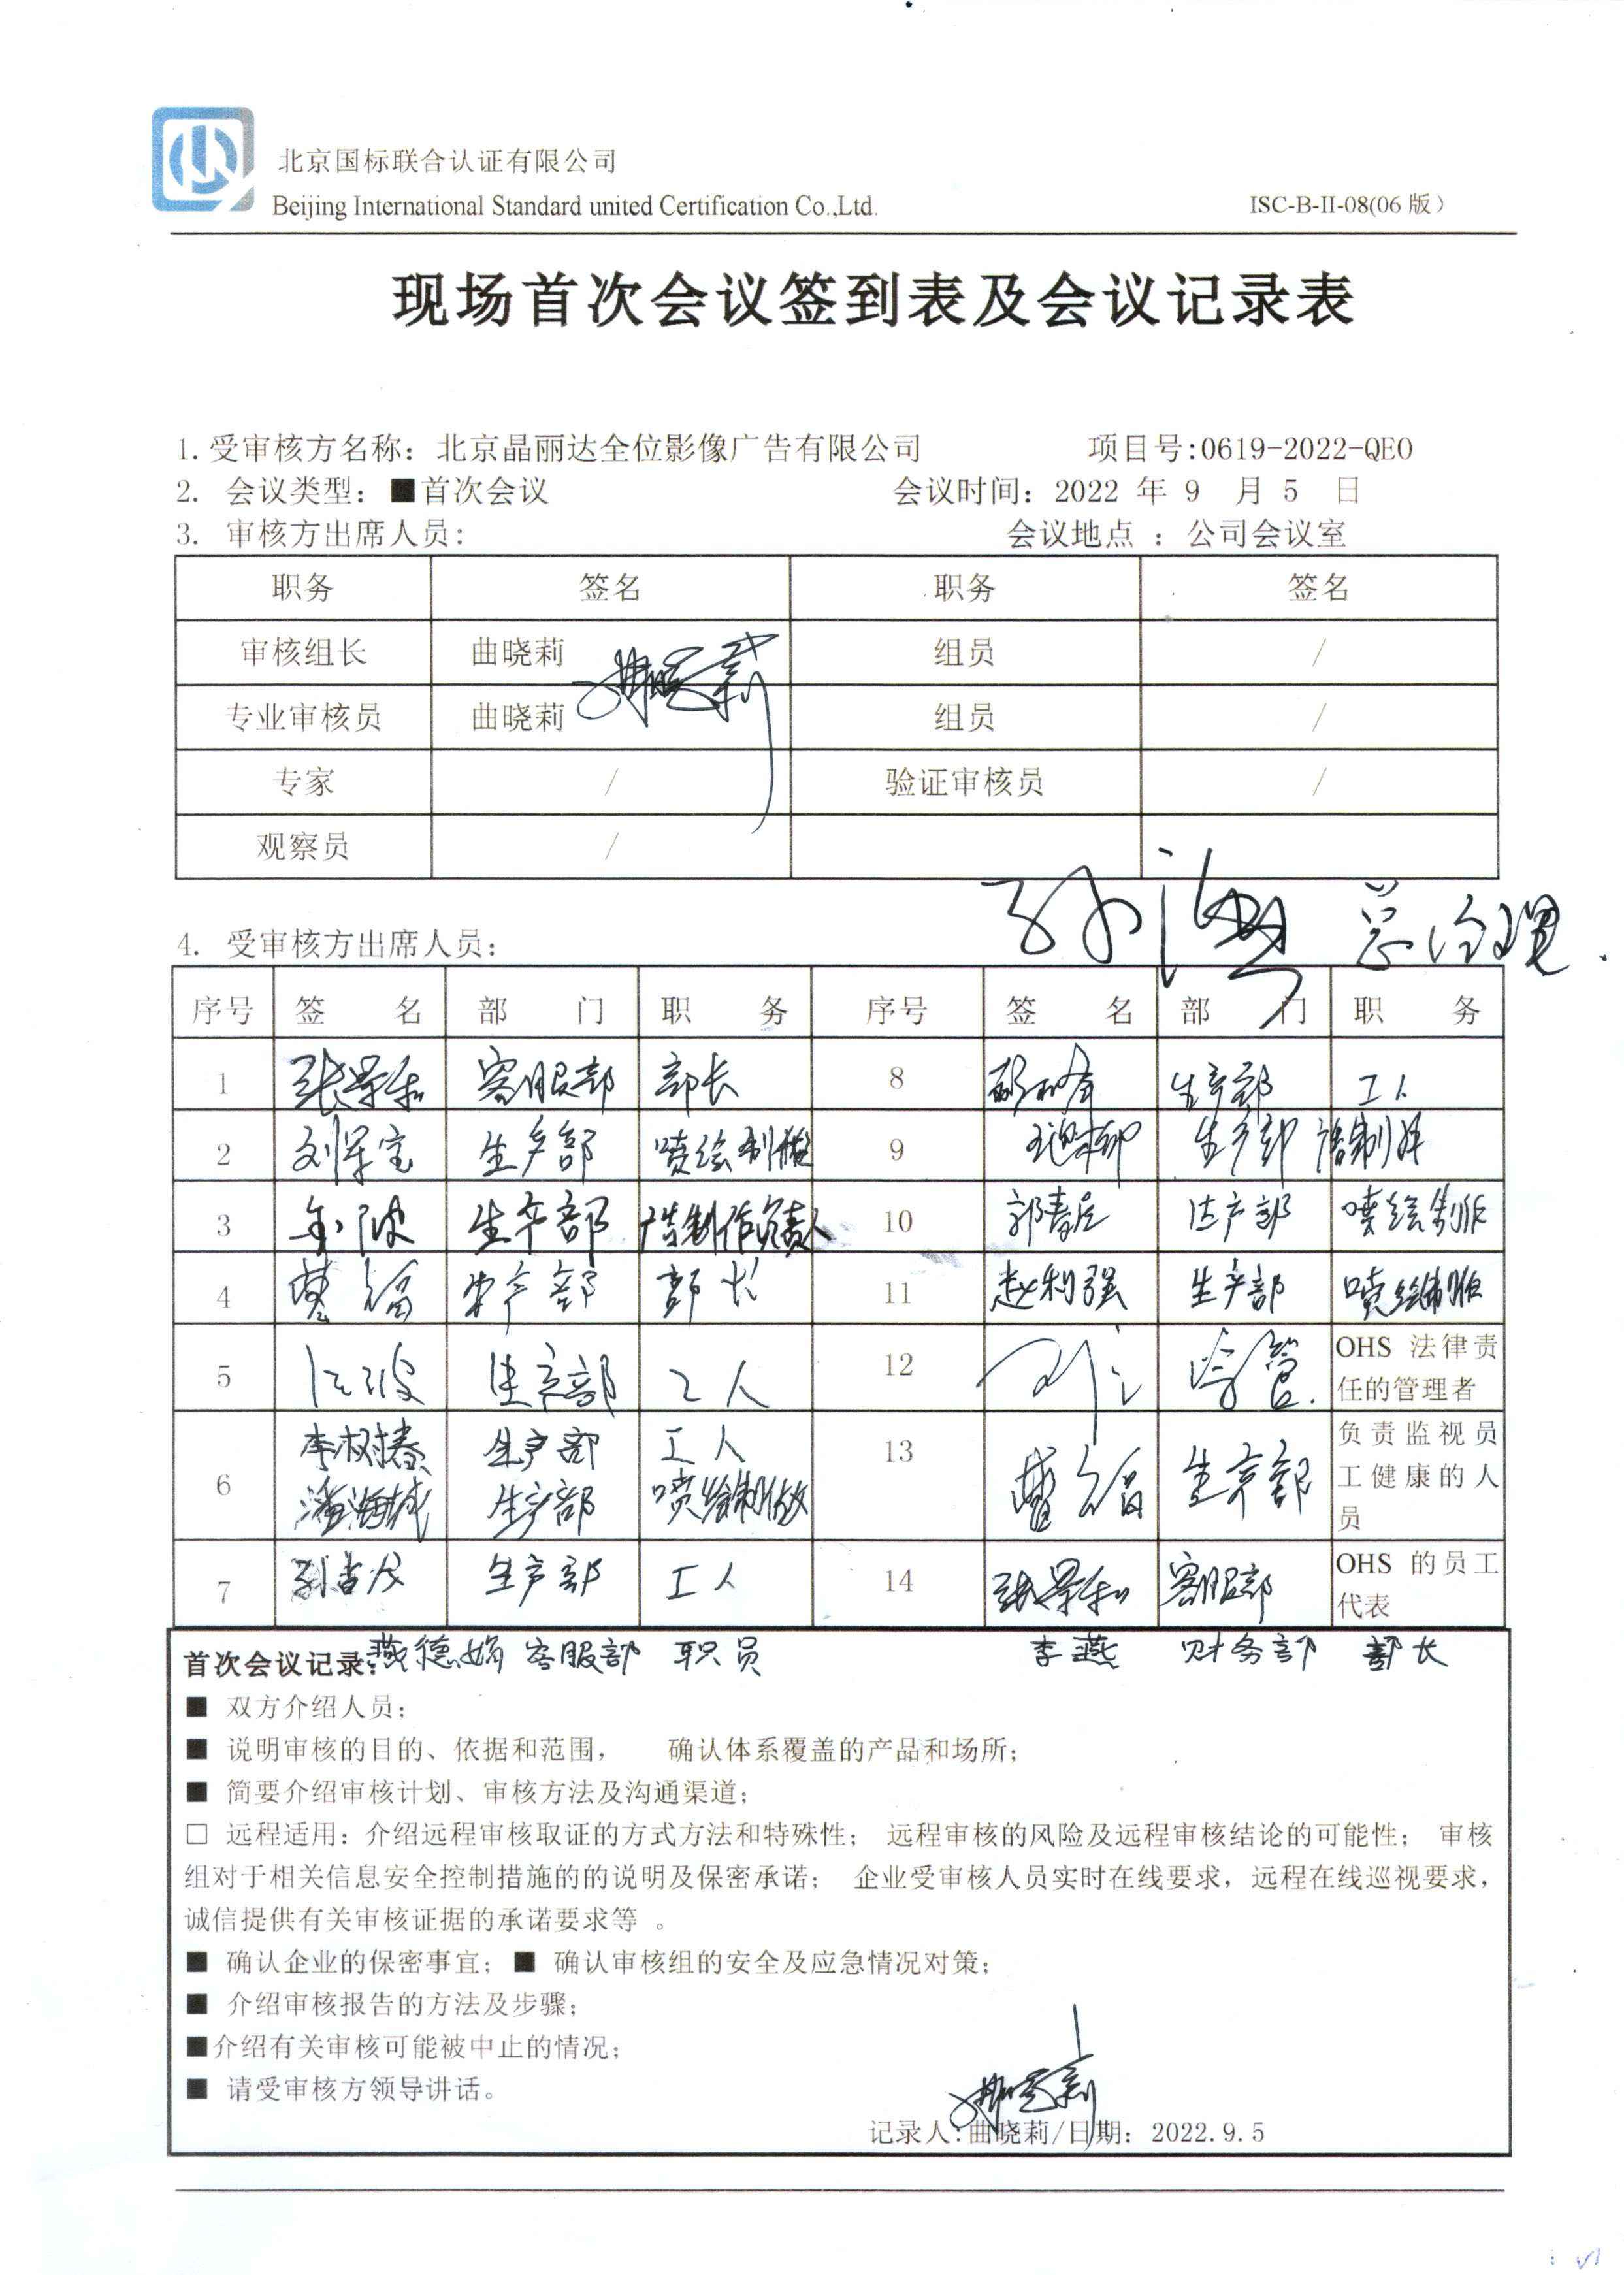 北京国标联合认证有限公司
Beijing International Standard united Certification Co.,Ltd.
ISC-B-II-08(06 版)
现场首次会议签到表及会议记录表
1.受审核方名称：北京晶丽达全位影像广告有限公司 项目号:0619-2022-QEO
2. 会议类型：■首次会议 会议时间：2022 年 9 月 5 日
3. 审核方出席人员: 会议地点 ：公司会议室
职务 签名 职务 签名
审核组长 曲晓莉 曲晓莉 组员 /
专业审核员 曲晓莉 组员 /
专家 / 验证审核员 /
观察员 /
总经理
4. 受审核方出席人员:
序号 签 名 部 门 职 务 序号 签 名 部 门 职 务
1 客服部 部长 8 生产部 工人
2 刘军宝 生产部 喷绘制做 9 生产部
3 生产部 10 生产部 喷绘制作
4 生产部 部长 11 赵利强 生产部 喷绘制作
5 生产部 工人 12 OHS 法律责任的管理者
6 李树春 生产部 工人 13 生产部 负责监视员工健康的人员
潘海城 生产部 喷绘制做
7 生产部 工人 14 客服部 OHS 的员工代表
首次会议记录: 客服部 职员 李燕 财务部 部长
■ 双方介绍人员;
■ 说明审核的目的、依据和范围， 确认体系覆盖的产品和场所;
■ 简要介绍审核计划、审核方法及沟通渠道;
□ 远程适用：介绍远程审核取证的方式方法和特殊性； 远程审核的风险及远程审核结论的可能性； 审核
组对于相关信息安全控制措施的的说明及保密承诺； 企业受审核人员实时在线要求，远程在线巡视要求，
诚信提供有关审核证据的承诺要求等 。
■ 确认企业的保密事宜；■ 确认审核组的安全及应急情况对策;
■ 介绍审核报告的方法及步骤;
■介绍有关审核可能被中止的情况;
■ 请受审核方领导讲话。
曲晓莉
记录人:曲晓莉/日期：2022.9.5